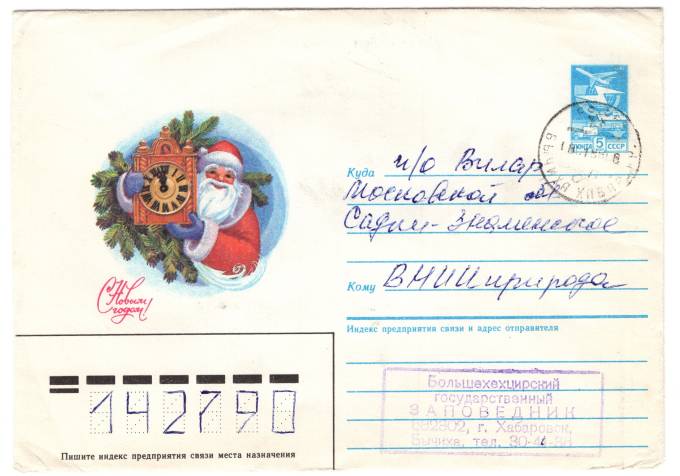 ПОЧТА 5 СССР
Куда п/о Вилар
Московской обл
Садки-Знаменское
Кому ВНИИприрода
С Новым
годом!
Индекс предприятия связи и адрес отправителя
142790
Пишите индекс предприятия связи места назначения
Большехехцирский
государственный
ЗАПОВЕДНИК
682302, г. Хабаровск,
Бычиха, тел. 30-41-38